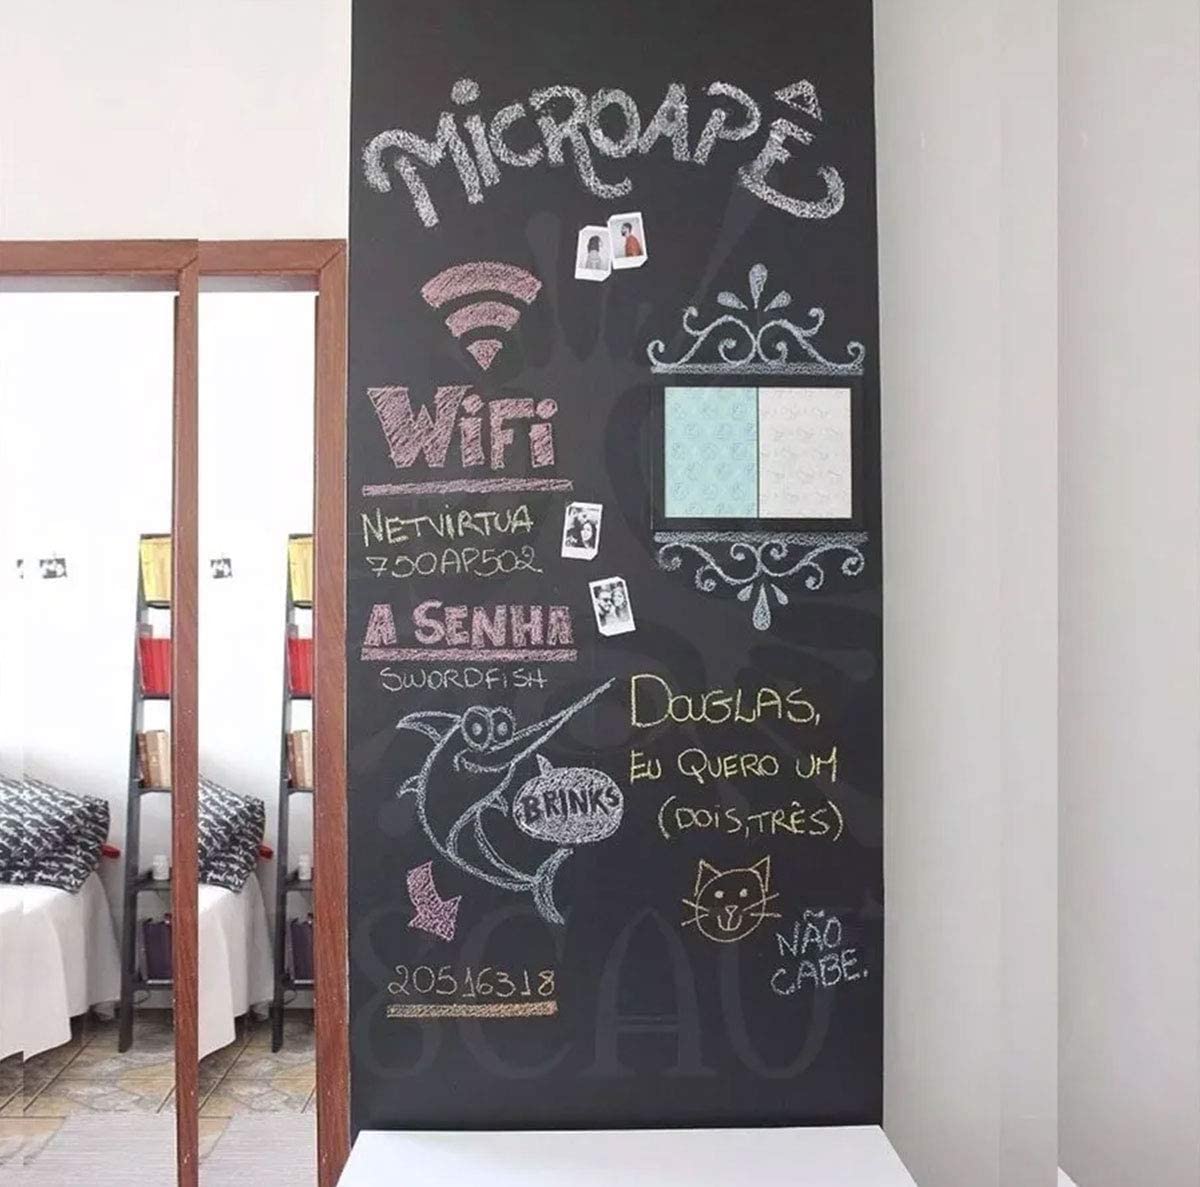 MICROAPÊ
WiFi
NETVIRTUA
730AP502
A SENHA
SWORDFISH
BRINKS
20516318
DOUGLAS,
EU QUERO UM
(DOIS,TRÊS)
NÃO
CABE.